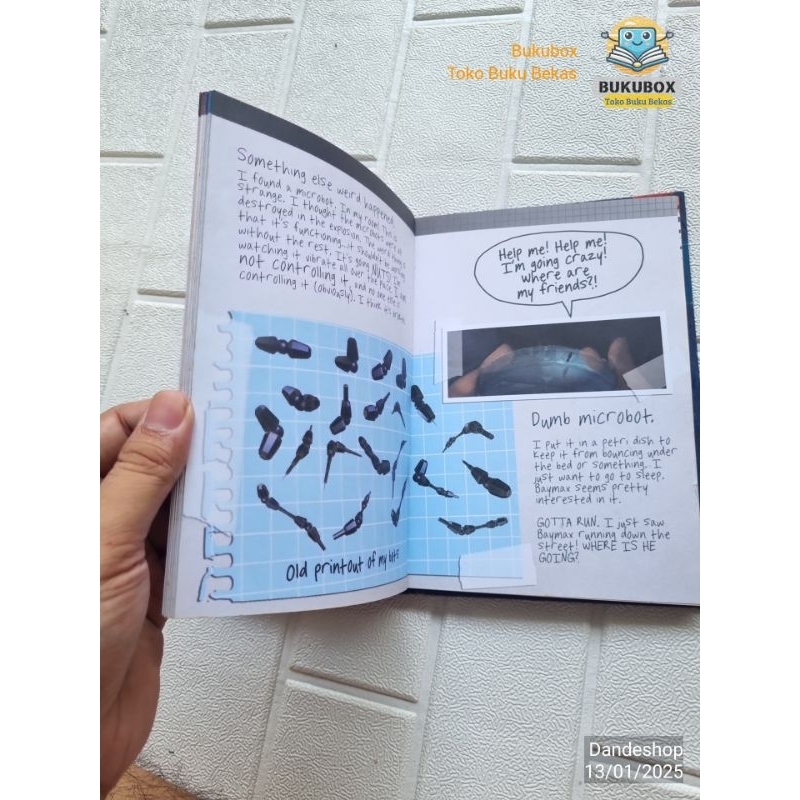 Bukubox
Toko Buku Bekas
BUKUBOX
Toko Buku Bekas
Something else weird happened
I found a microbot. In my room! This is
strange. I thought the microbots were all
destroyed in the explosion. The weird thing is
that it's functioning...it shouldn't be working
without the rest. It's going NUTS! I'm
watching it vibrate all over the place. I am
not controlling it, and no one else is
controlling it (obviously). I think it's
Old printout of my bots
Help me! Help me!
I'm going crazy!
Where are
my friends?!
Dumb microbot.
I put it in a petri dish to
keep it from bouncing under
the bed or something. I
just want to go to sleep.
Baymax seems pretty
interested in it.
GOTTA RUN. I just saw
Baymax running down the
street! WHERE IS HE
GOING?
Dandeshop
13/01/2025